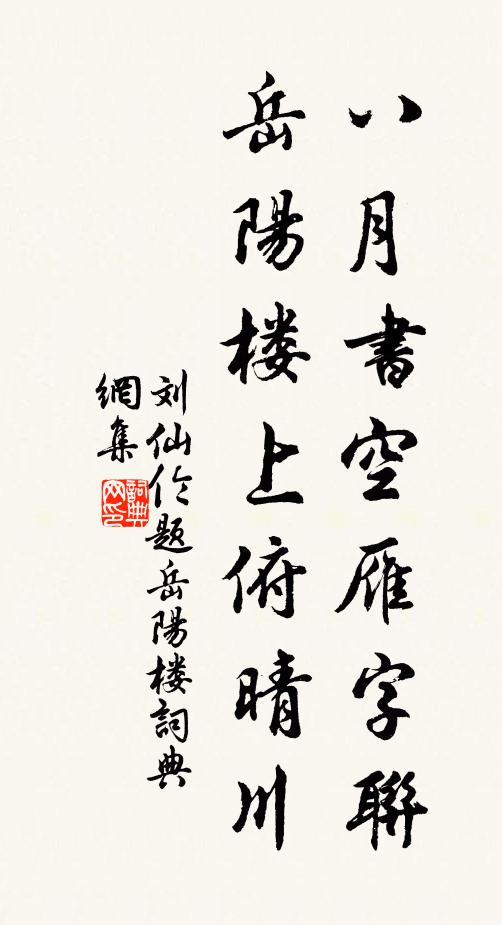 八月書空雁字聯
岳陽楼上俯晴川
刘仙伦題岳陽楼詞典
網集
詞典網印